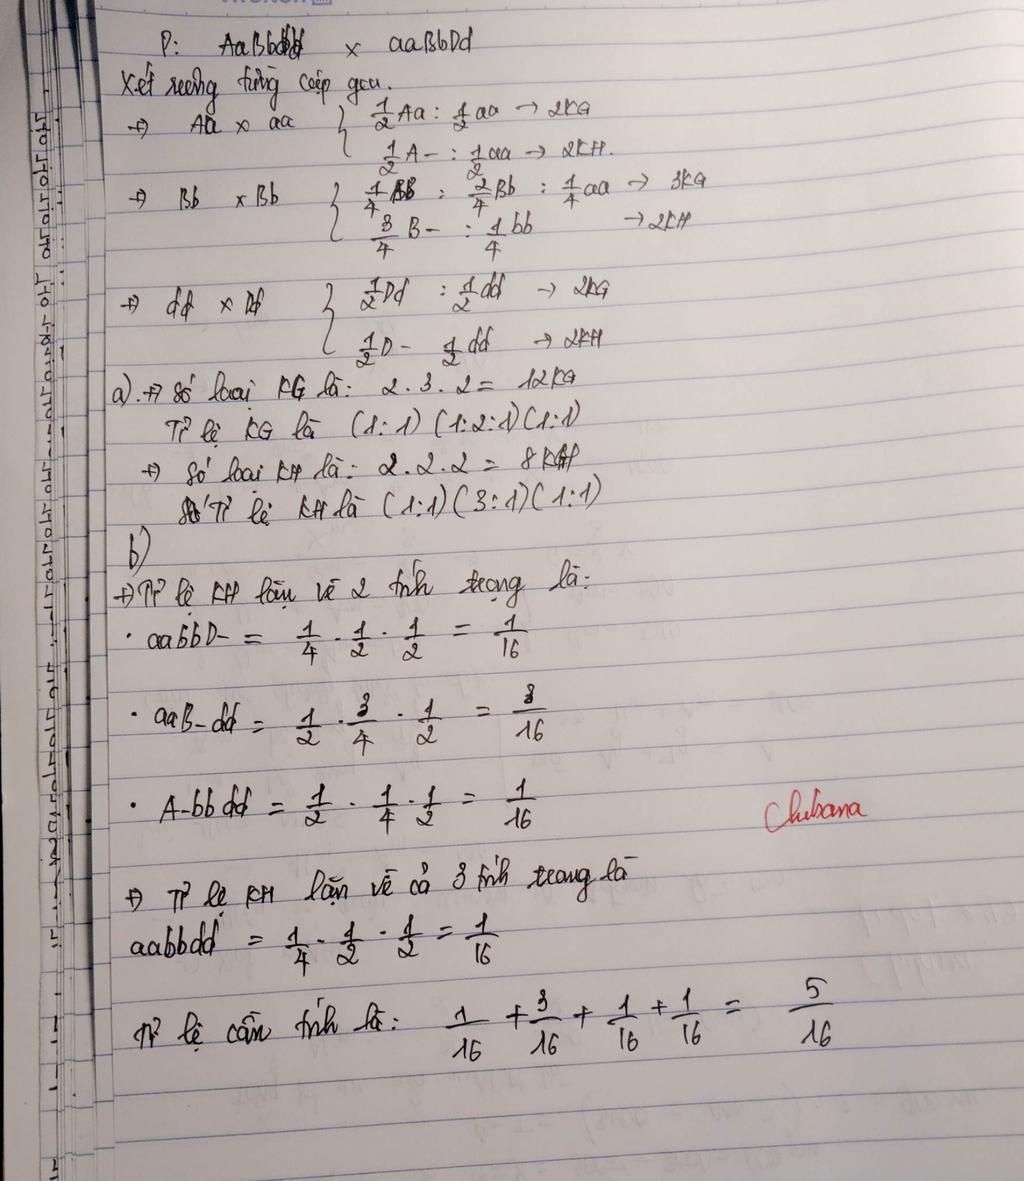 P: AaBbdd x aaBbDd
Xét riêng từng cặp gen.
+) Aa x aa { 1/2 Aa : 1/2 aa → 2KG
1/2 A- : 1/2 aa → 2KH.
+) Bb x Bb { 1/4 BB : 2/4 Bb : 1/4 aa → 3KG
3/4 B- : 1/4 bb → 2KH
+) dd x Dd { 1/2 Dd : 1/2 dd → 2KG
1/2 D- 1/2 dd → 2KH
a). +) Số loại KG là: 2.3.2 = 12KG
Tỉ lệ KG là (1:1) (1:2:1) (1:1)
+) Số loại KH là: 2.2.2 = 8KH
Tỉ lệ KH là (1:1) (3:1) (1:1)
b)
+) Tỉ lệ KH lặn về 2 tính trạng là:
• aabbD- = 1/4 . 1/2 . 1/2 = 1/16
• aaB-dd = 1/2 . 3/4 . 1/2 = 3/16
• A-bbdd = 1/2 . 1/4 . 1/2 = 1/16
Chibana
+) Tỉ lệ KH lặn về cả 3 tính trạng là
aabbdd = 1/4 . 1/2 . 1/2 = 1/16
Tỉ lệ cần tính là: 1/16 + 3/16 + 1/16 + 1/16 = 5/16